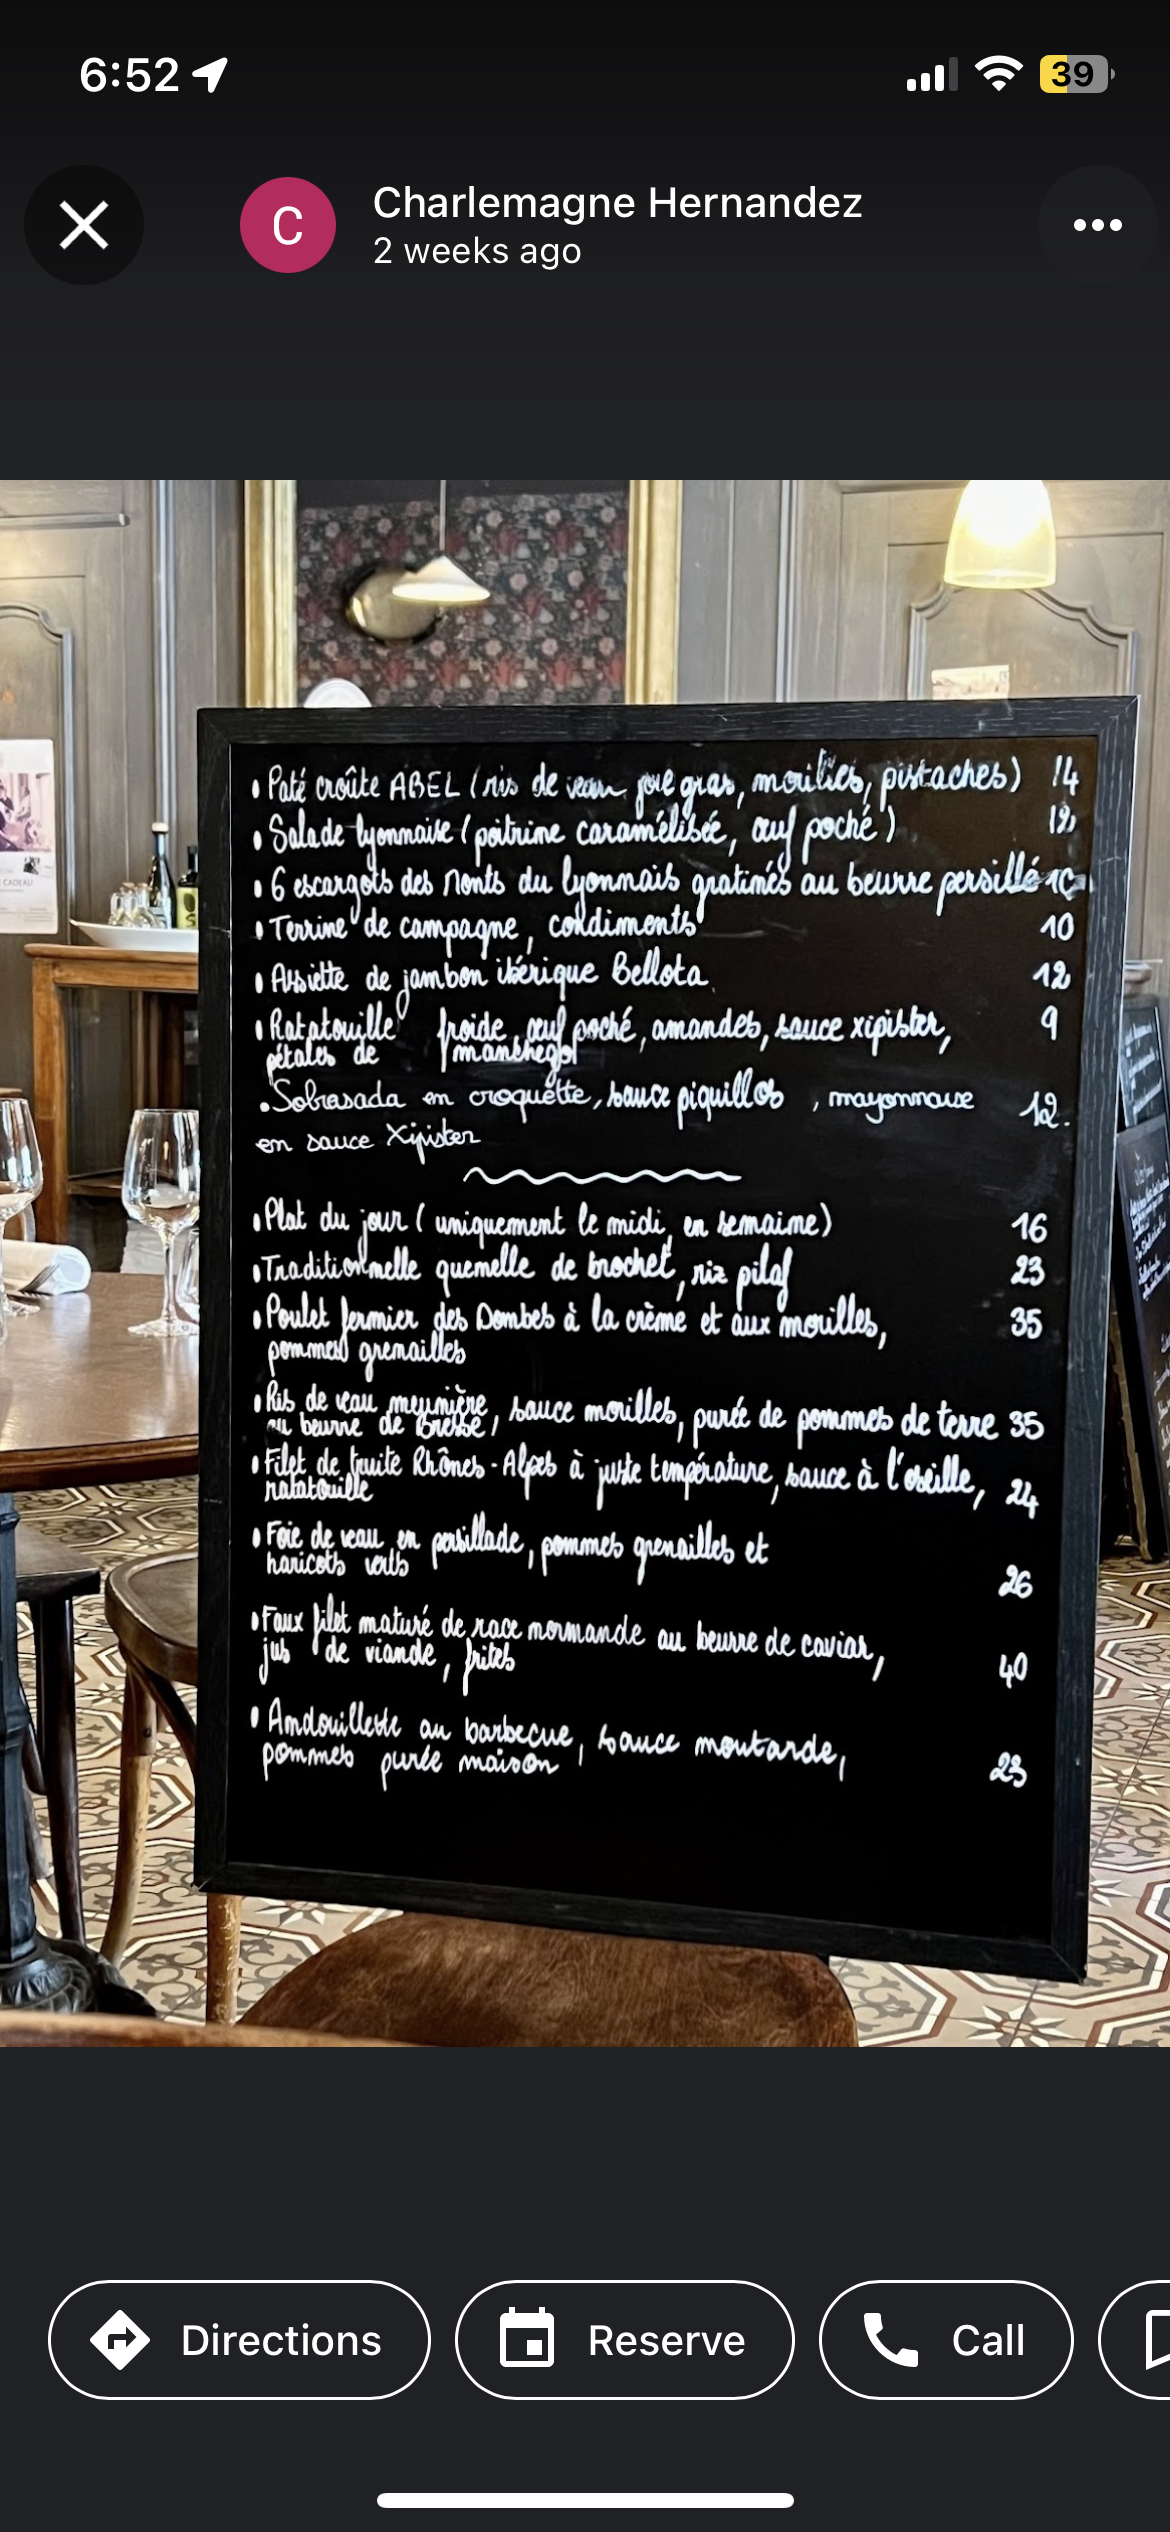 6:52
39
C
Charlemagne Hernandez
2 weeks ago
CADEAU
• Paté croûte ABEL (ris de veau foie gras, morilles, pistaches) 14
• Salade lyonnaise (poitrine caramélisée, œuf poché) 12
• 6 escargots des Monts du lyonnais gratinés au beurre persillé
• Terrine de campagne, condiments 10
• Assiette de jambon ibérique Bellota 12
• Ratatouille froide, œuf poché, amandes, sauce xipister, 9
pétales de manchego
• Sobrasada en croquette, sauce piquillos, mayonnaise 12.
en sauce Xipister
• Plat du jour (uniquement le midi, en semaine) 16
• Traditionnelle quenelle de brochet, riz pilaf 23
• Poulet fermier des Dombes à la crème et aux morilles, 35
pommes grenailles
• Ris de veau meunière, sauce morilles, purée de pommes de terre 35
au beurre de Bresse,
• Filet de truite Rhônes-Alpes à juste température, sauce à l'oseille, 24
ratatouille
• Foie de veau en persillade, pommes grenailles et
haricots verts 26
• Faux filet maturé de race normande au beurre de caviar,
jus de viande, frites 40
• Andouillette au barbecue, sauce moutarde,
pommes purée maison 23
Directions
Reserve
Call